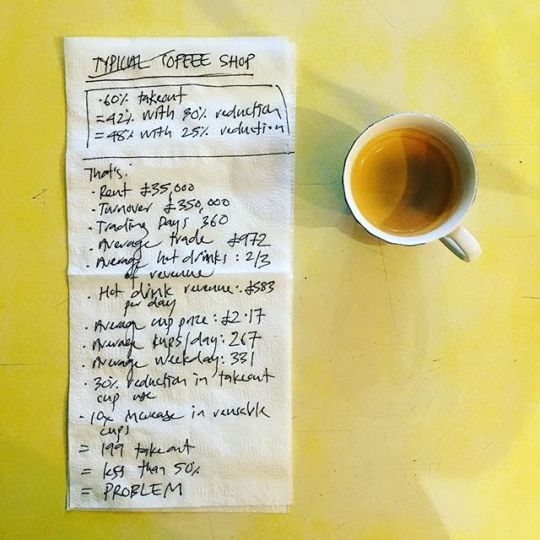 TYPICAL TOFEEE SHOP
·60% takeout
=42% with 30% reduction
=48% with 25% reduction
That's:
·Rent £35,000
·Turnover £350,000
·Trading Days 360
·Average trade £972
·Average hot drinks: 2/3
of revenue
·Hot drink revenue: £583
per day
·Average cup price: £2.17
·Average cups/day: 267
·Average weekday: 331
·30% reduction in takeout
cup use
·10x increase in reusable
cups
= 199 takeout
= less than 50%
= PROBLEM